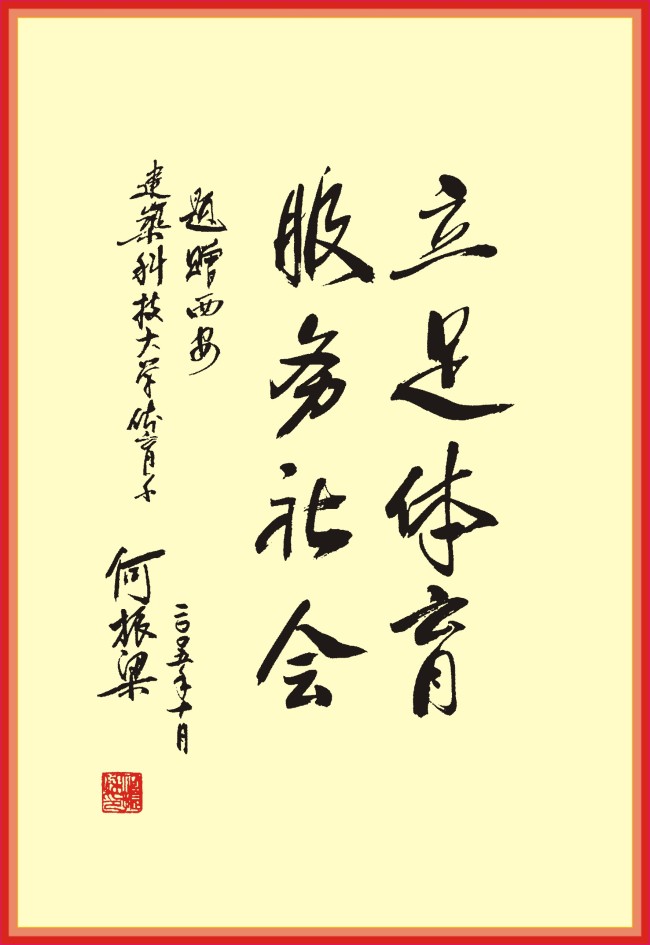 立足体育
服务社会
题赠西安
建筑科技大学体育系
何振梁
二〇〇五年十月